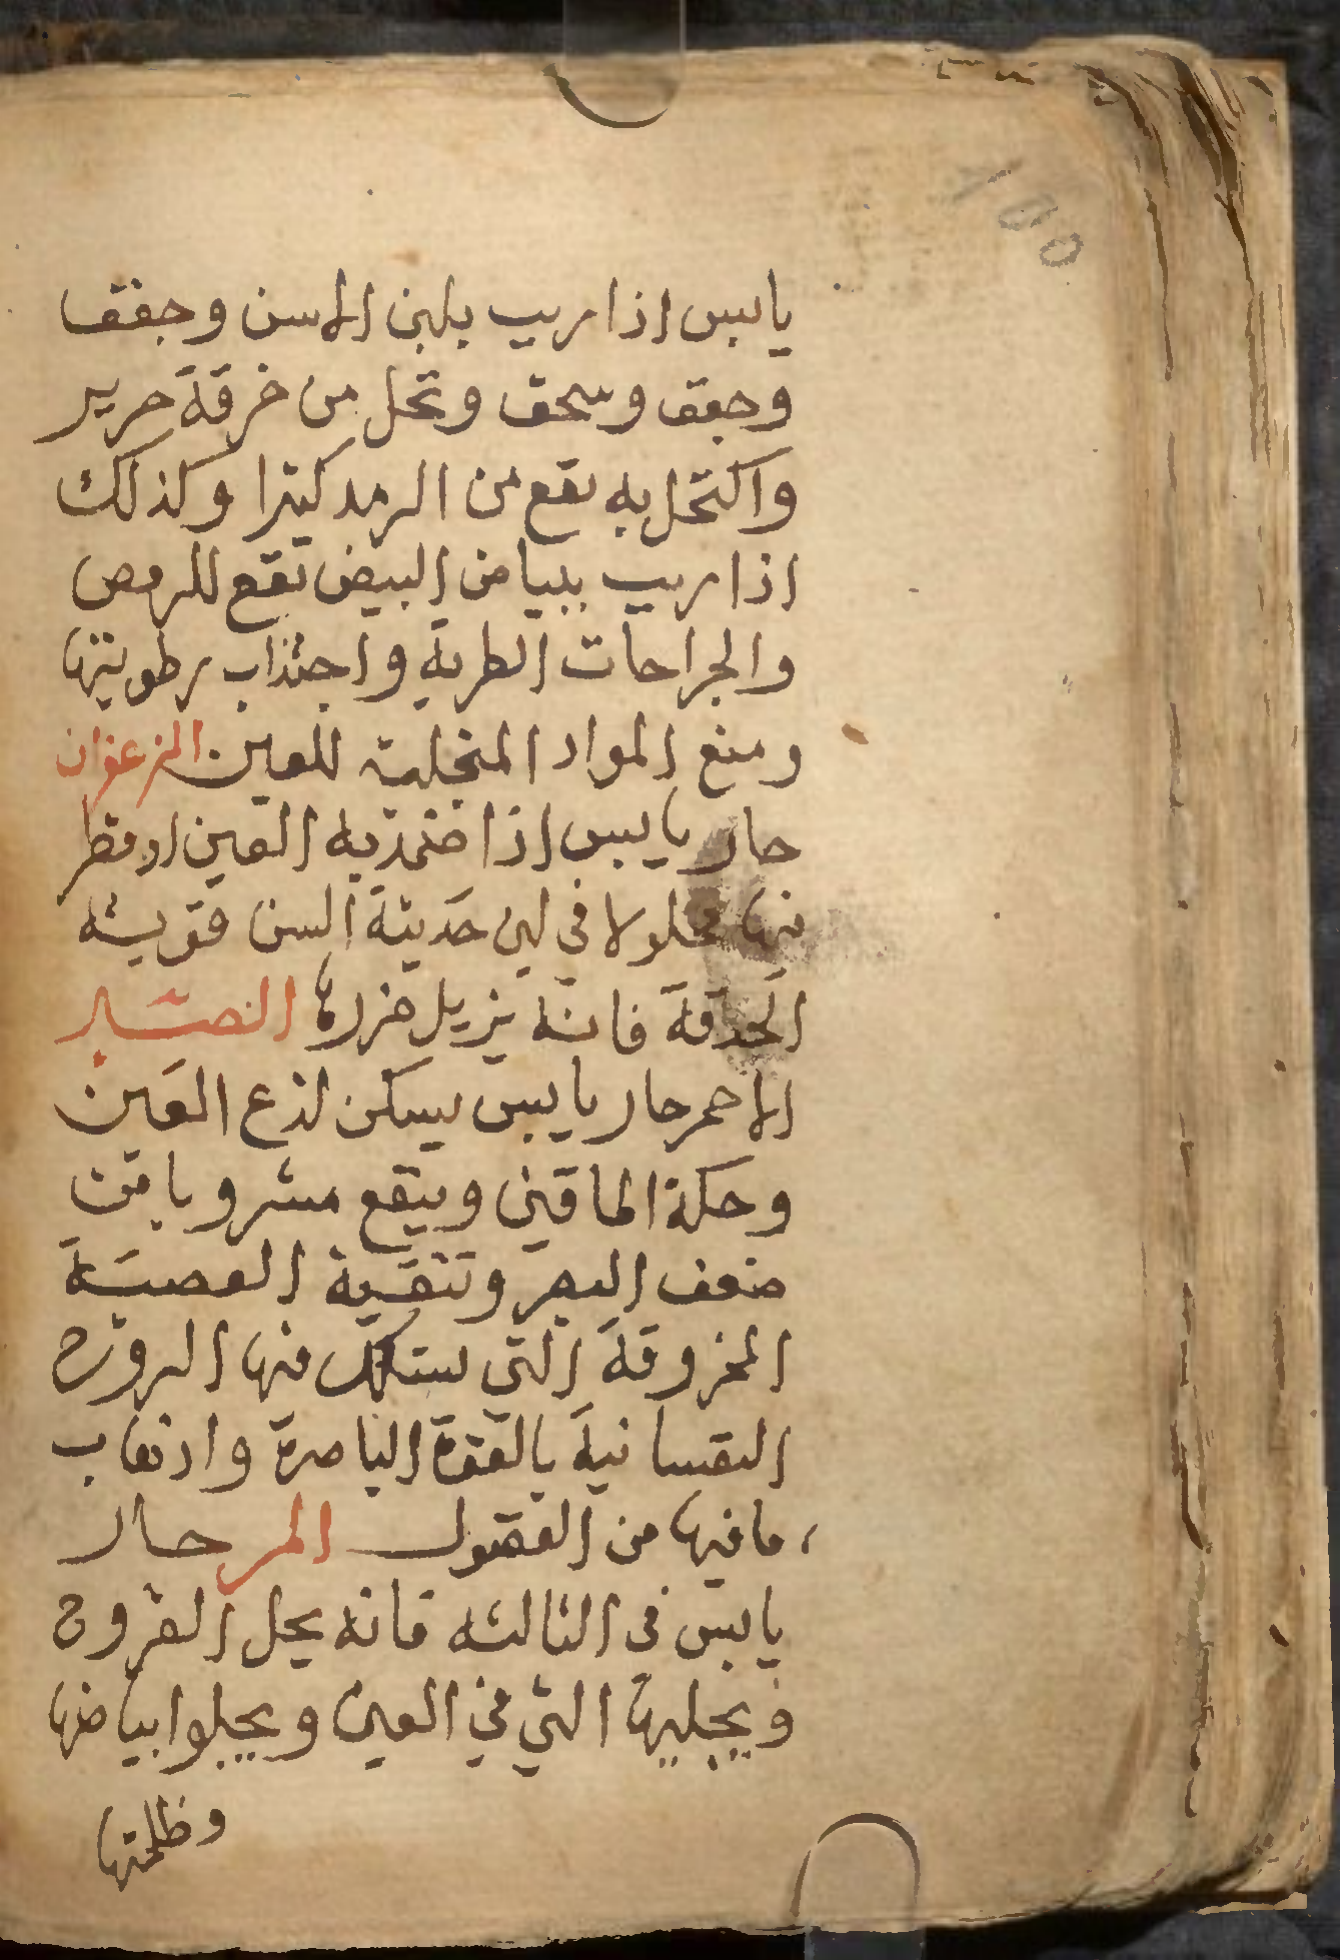 يابس اذا ربب بلبن الاتن وجفف
وجفف وسحق ونخل من خرقة حرير
واكتحل به نفع من الرمد كثيرا وكذلك
اذا ربب ببياض البيض نفع للرمص
والجراحات الطرية واجتذاب رطوبتها
ومنع المواد المنجلبة للعين الزعفران
حار يابس اذا ضمد به العين او قطر
فيها محلولا في لبن حديثة السن قويت
الحدقة فانه يزيل ضررها الصبر
الاحمر حار يابس يسكن لذع العين
وحكة الماقين وينفع مشروبا من
ضعف البصر وتنقية العصبة
التي فيها الروح
النفسانية بالقوة الباصرة واذهاب
ما فيها من الفضول المر حار
يابس في الثالثه فانه يحل القروح
ويجليها التي في العين ويجلوا بياضها
وظلمتها